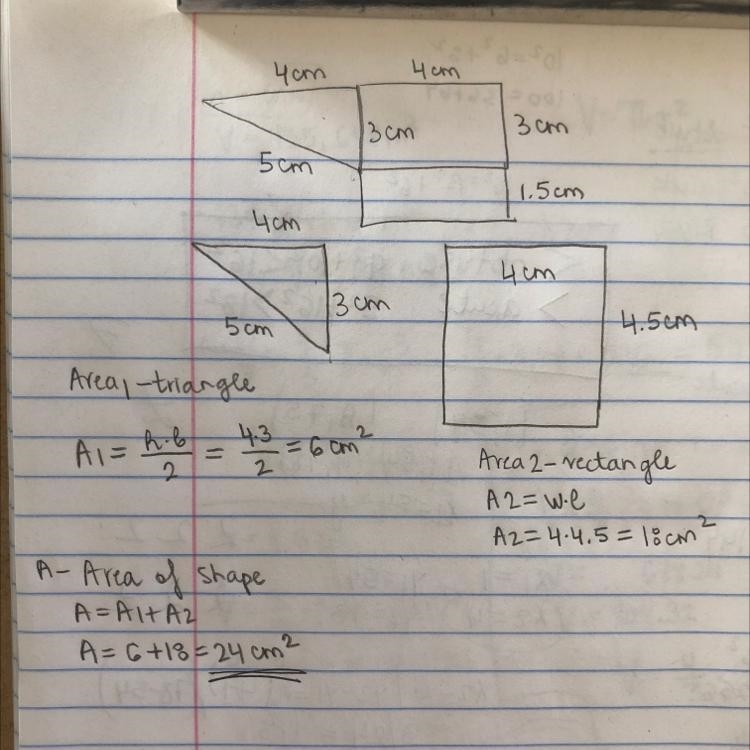 4cm 4cm
3cm 3cm
5cm
1.5cm
4cm
4cm
3cm
5cm
4.5cm
Area1-triangle
A1 = h·b/2 = 4.3/2 = 6 cm²
Area2-rectangle
A2 = w·l
A2 = 4·4.5 = 18cm²
A - Area of shape
A = A1 + A2
A = 6 + 18 = 24 cm²